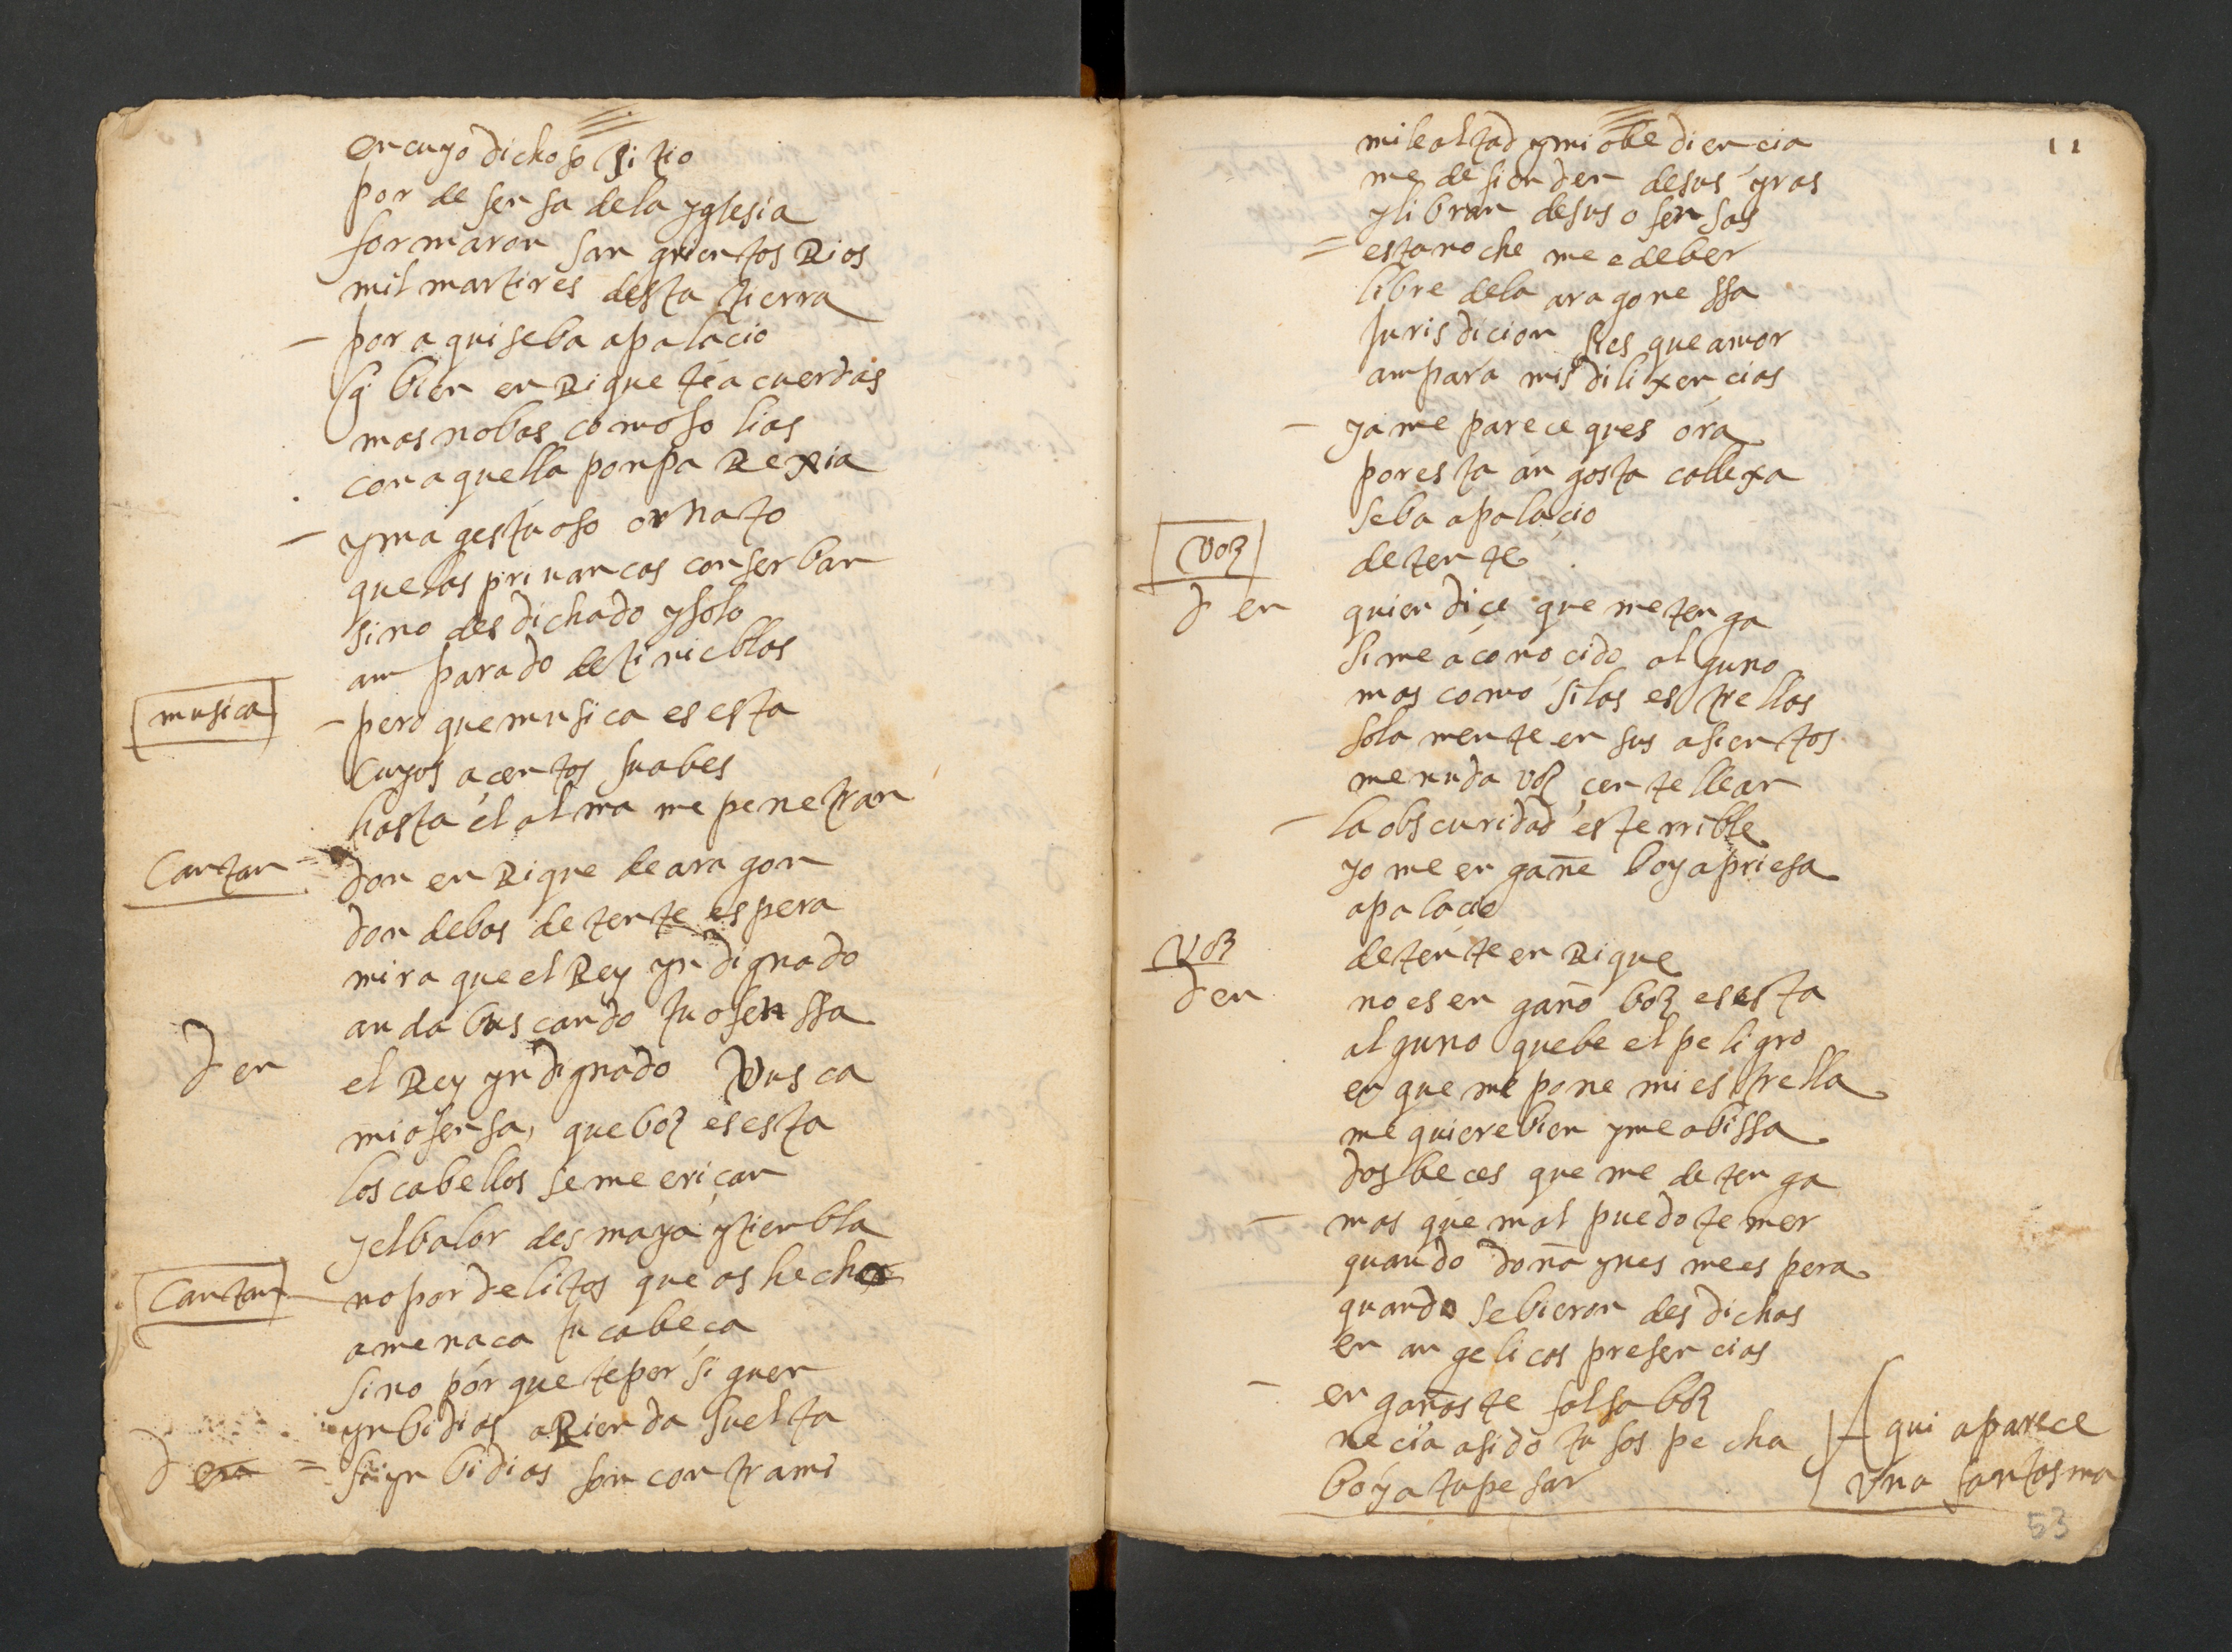 en cuyo dichoso sitio
por defensa dela yglesia
formaron san grientos Rios
mil martires desta tierra
– por aqui seba apalacio
q bien enRique te acuerdas
mas nobas como solias
con aquella ponpa Rexia
– y magestuoso ornato
que las priuancas conserban
sino desdichado y solo
amparado de tinieblas
musica – pero que musica es esta
cuyos açentos suabes
hasta el alma me penetran
Cantan = don enRique de aragon
don debas detente espera
mira que el Rey yndignado
anda buscando tu ofenssa
d en el Rey yndignado Vusca
mi ofensa, que boz es esta
los cabellos se me eriçan
y el balor desmaya y tienbla
Cantan no por delitos que as hecho
amenaca tu cabeça
sino porque te persiguen
ynbidias aRienda suelta
d en = si ynbidias son contra mi
11
mi lealtad y mi obediencia
me defienden de sus yras
y libran de sus ofensas
= esta noche me e de ber
libre dela aragonessa
Jurisdicion pues que amor
ampara mis dilixencias
– ya me parece ques ora
por esta angosta callexa
seba apalaçio
Voz detente
d en quien diçe que me tenga
si me a conocido alguno
mas como si las estrellas
sola mente en sus asientos
menuda voz çentellean
– la obscuridad es terrible
yo me engañe boy apriesa
apalacio
Voz detente enRique
d en no es engaño boz es esta
alguno que be el peligro
en que me pone mi estrella
me quiere bien y me abissa
dos beces que me detenga
– mas que mal puedo temer
quando doña ynes me espera
quando se bieron desdichas
en angelicas presencias
– engañaste falsa boz
necia a sido tu sospecha
boy a tu pesar
Aqui aparece
Vna fantasma
53